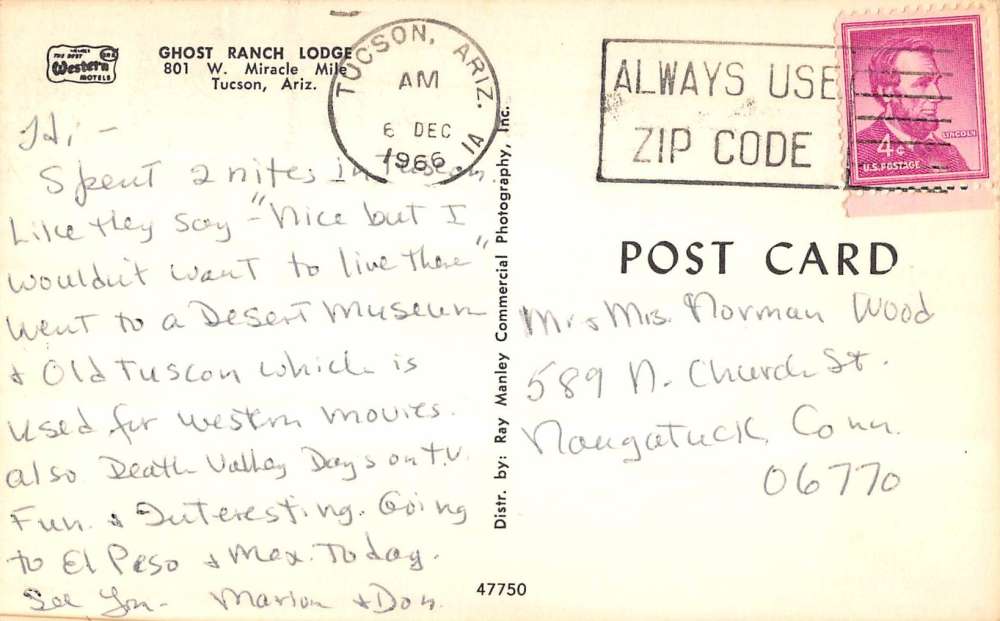 THE BEST
Western
MOTELS
GHOST RANCH LODGE
801 W. Miracle Mile
Tucson, Ariz.
TUCSON, ARIZ.
AM
6 DEC
1966
1A
ALWAYS USE
ZIP CODE
LINCOLN
4¢
U.S. POSTAGE
Hi, -
Spent 2 nites in Tuscon.
Like they say - "Nice but I
wouldn't want to live there"
Went to a Desert Museum
+ Old Tuscon which is
used for western movies.
also Death Valley Days on T.V.
Fun. & Interesting. Going
to El Paso + Mex. Today.
See You - Marion + Don.
Distr. by: Ray Manley Commercial Photography, Inc.
POST CARD
Mr & Mrs. Norman Wood
589 N. Church St.
Naugatuck, Conn.
06770
47750